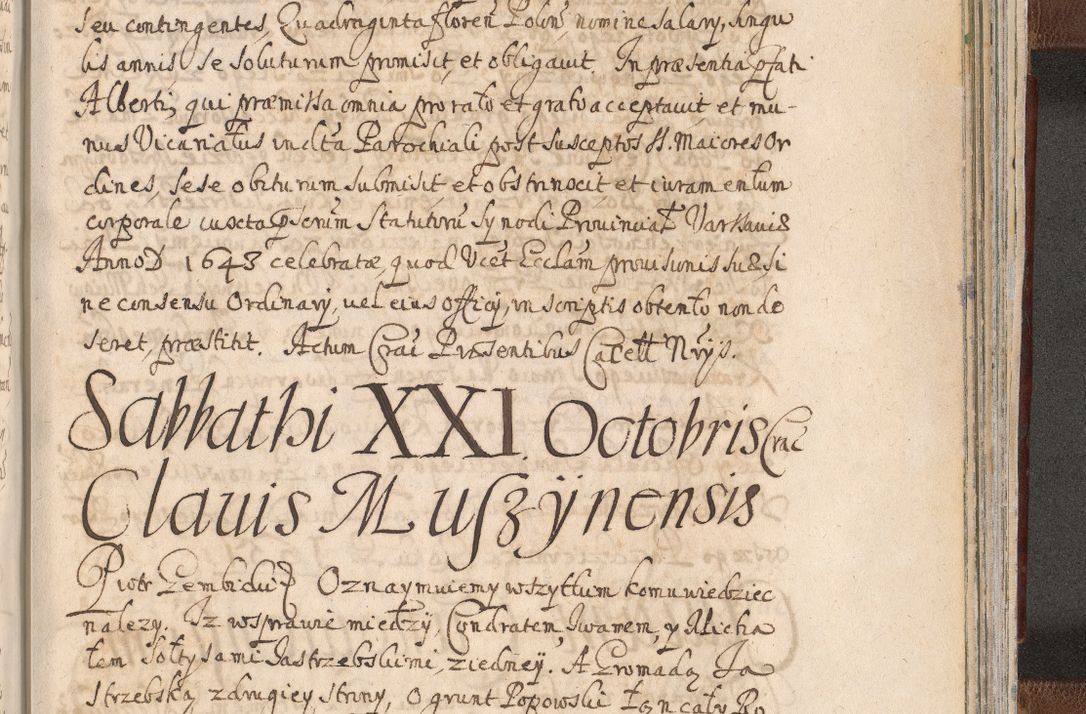 seu contingentes, Quadraginta floreń Polon̄ nomine salarÿ, singu
lis annis se soluturum promisit, et obligauit. In præsentia pfati
Alberti, qui præmissa omnia pro rato et grato acceptauit et mu-
nus Vicariatus in dcta Parochiali post susceptos SS. Maiores Or
dines, sese obiturum submisit et obstrinxit et iuramentum
corporale iuxta pscrum Statutorū Synodi Prouinciał Varsauie
Anno D 1643 celebratæ, quod Vcet Ecclam prouisionis suæ, si
ne consensu Ordinarÿ, uel eius officÿ, in scriptis obtento non de
seret, præstitit. Actum Crac Præsentibus Cacell Nrÿs.
Sabbathi XXI. Octobris Crac
Clauis Muszÿnensis
Piotr Gembicki Oznaymuiemy wszytkim komu wiedziec
nalezy. Iz w sprawie miedzÿ, Condratem, Iwanem, y Micha
łem Sołtysami Jastrzebskimi, z iedneÿ. A Gromadą Ja
strzebską z drugiey strony, o grunt Popowski Łąn cały Ro